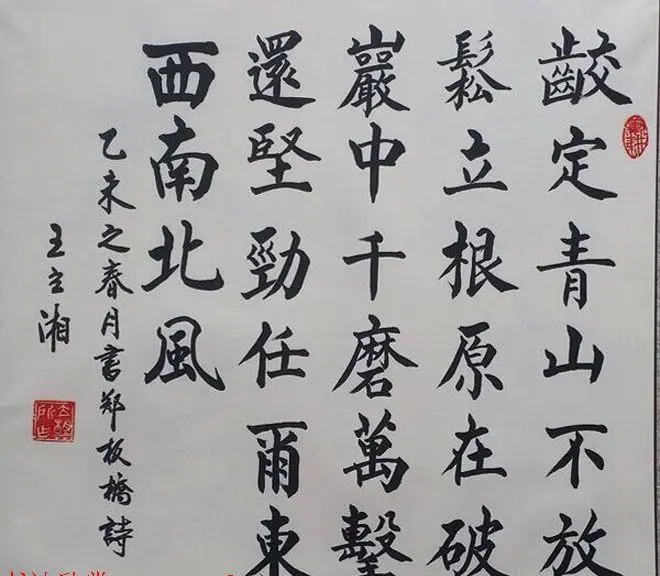 齩定青山不放
鬆立根原在破
巖中千磨萬擊
還堅勁任爾東
西南北風
乙未之春月書郑板橋詩
王立湘